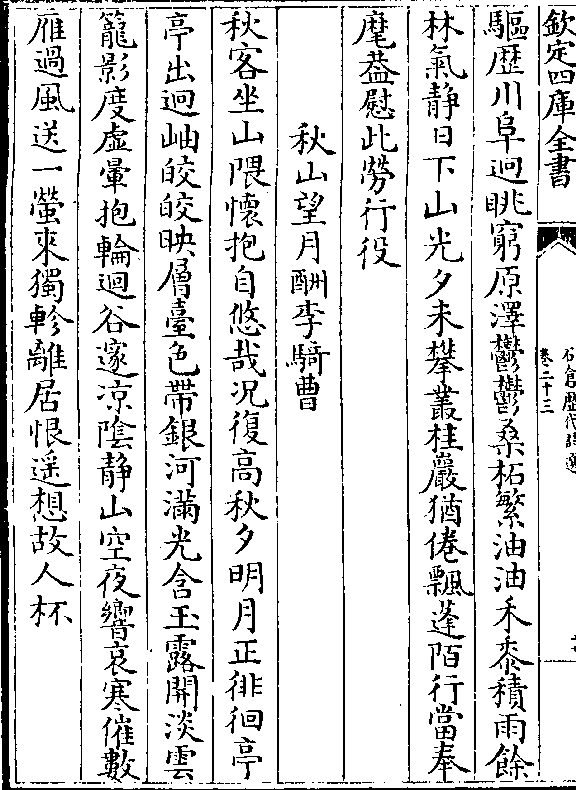 欽定四庫全書
石倉歷代詩選
卷二十三
驅歴川阜迥眺窮原澤鬱鬱桑柘繁油油禾黍積雨餘
林氣静日下山光夕未攀叢桂巖猶倦飄蓬陌行當奉
麾葢慰此勞行役
秋山望月酬李騎曹
秋客坐山隈懷抱自悠哉况復高秋夕明月正徘徊亭
亭出迥岫皎皎映層臺色帶銀河滿光含玉露開淡雲
籠影度虚暈抱輪迴谷邃凉陰静山空夜響哀寒催數
雁過風送一螢來獨軫離居恨遥想故人杯